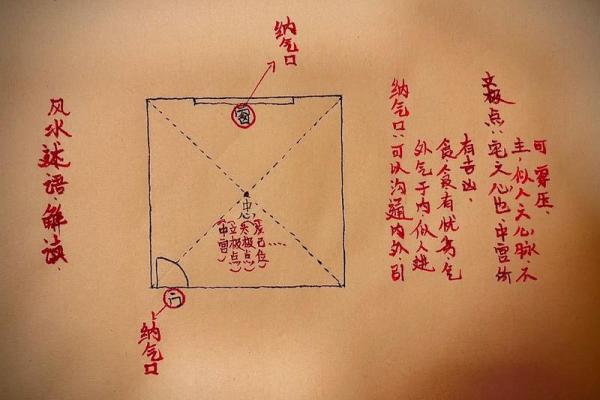 风水述语.解读.
纳气口
窗
中心
(中宫)
(立极点)
(太极点)
(戊己位)……
门
纳气口
太极点:宅之心也.中宫所
主,似人之心脉,不
可压.
纳气口:可以沟通内外,引
外气于内似人进
食,食有优劣,气
有吉凶.